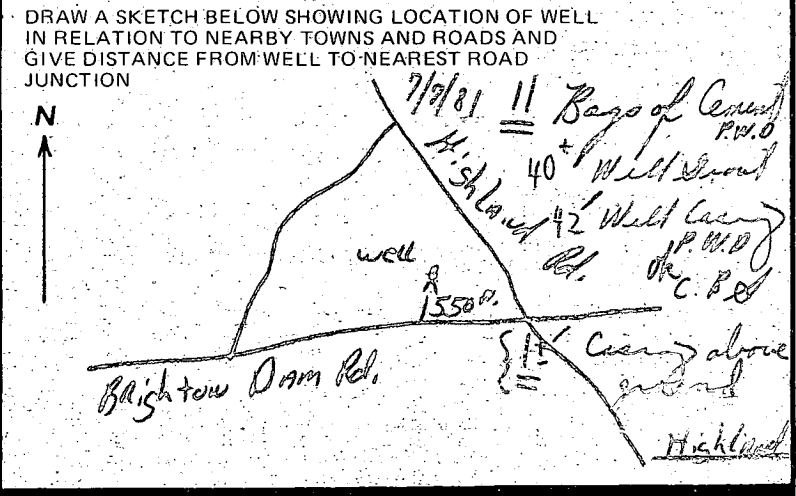 DRAW A SKETCH BELOW SHOWING LOCATION OF WELL
IN RELATION TO NEARBY TOWNS AND ROADS AND
GIVE DISTANCE FROM WELL TO NEAREST ROAD
JUNCTION
N
11 Bags of Cement
P.W.D
40± Well Grout
Highland Rd.
42' Well Casing
P.W.D
ok
well
550 ft.
1±' Casing above
ground
Brighton Dam Rd.
Highland